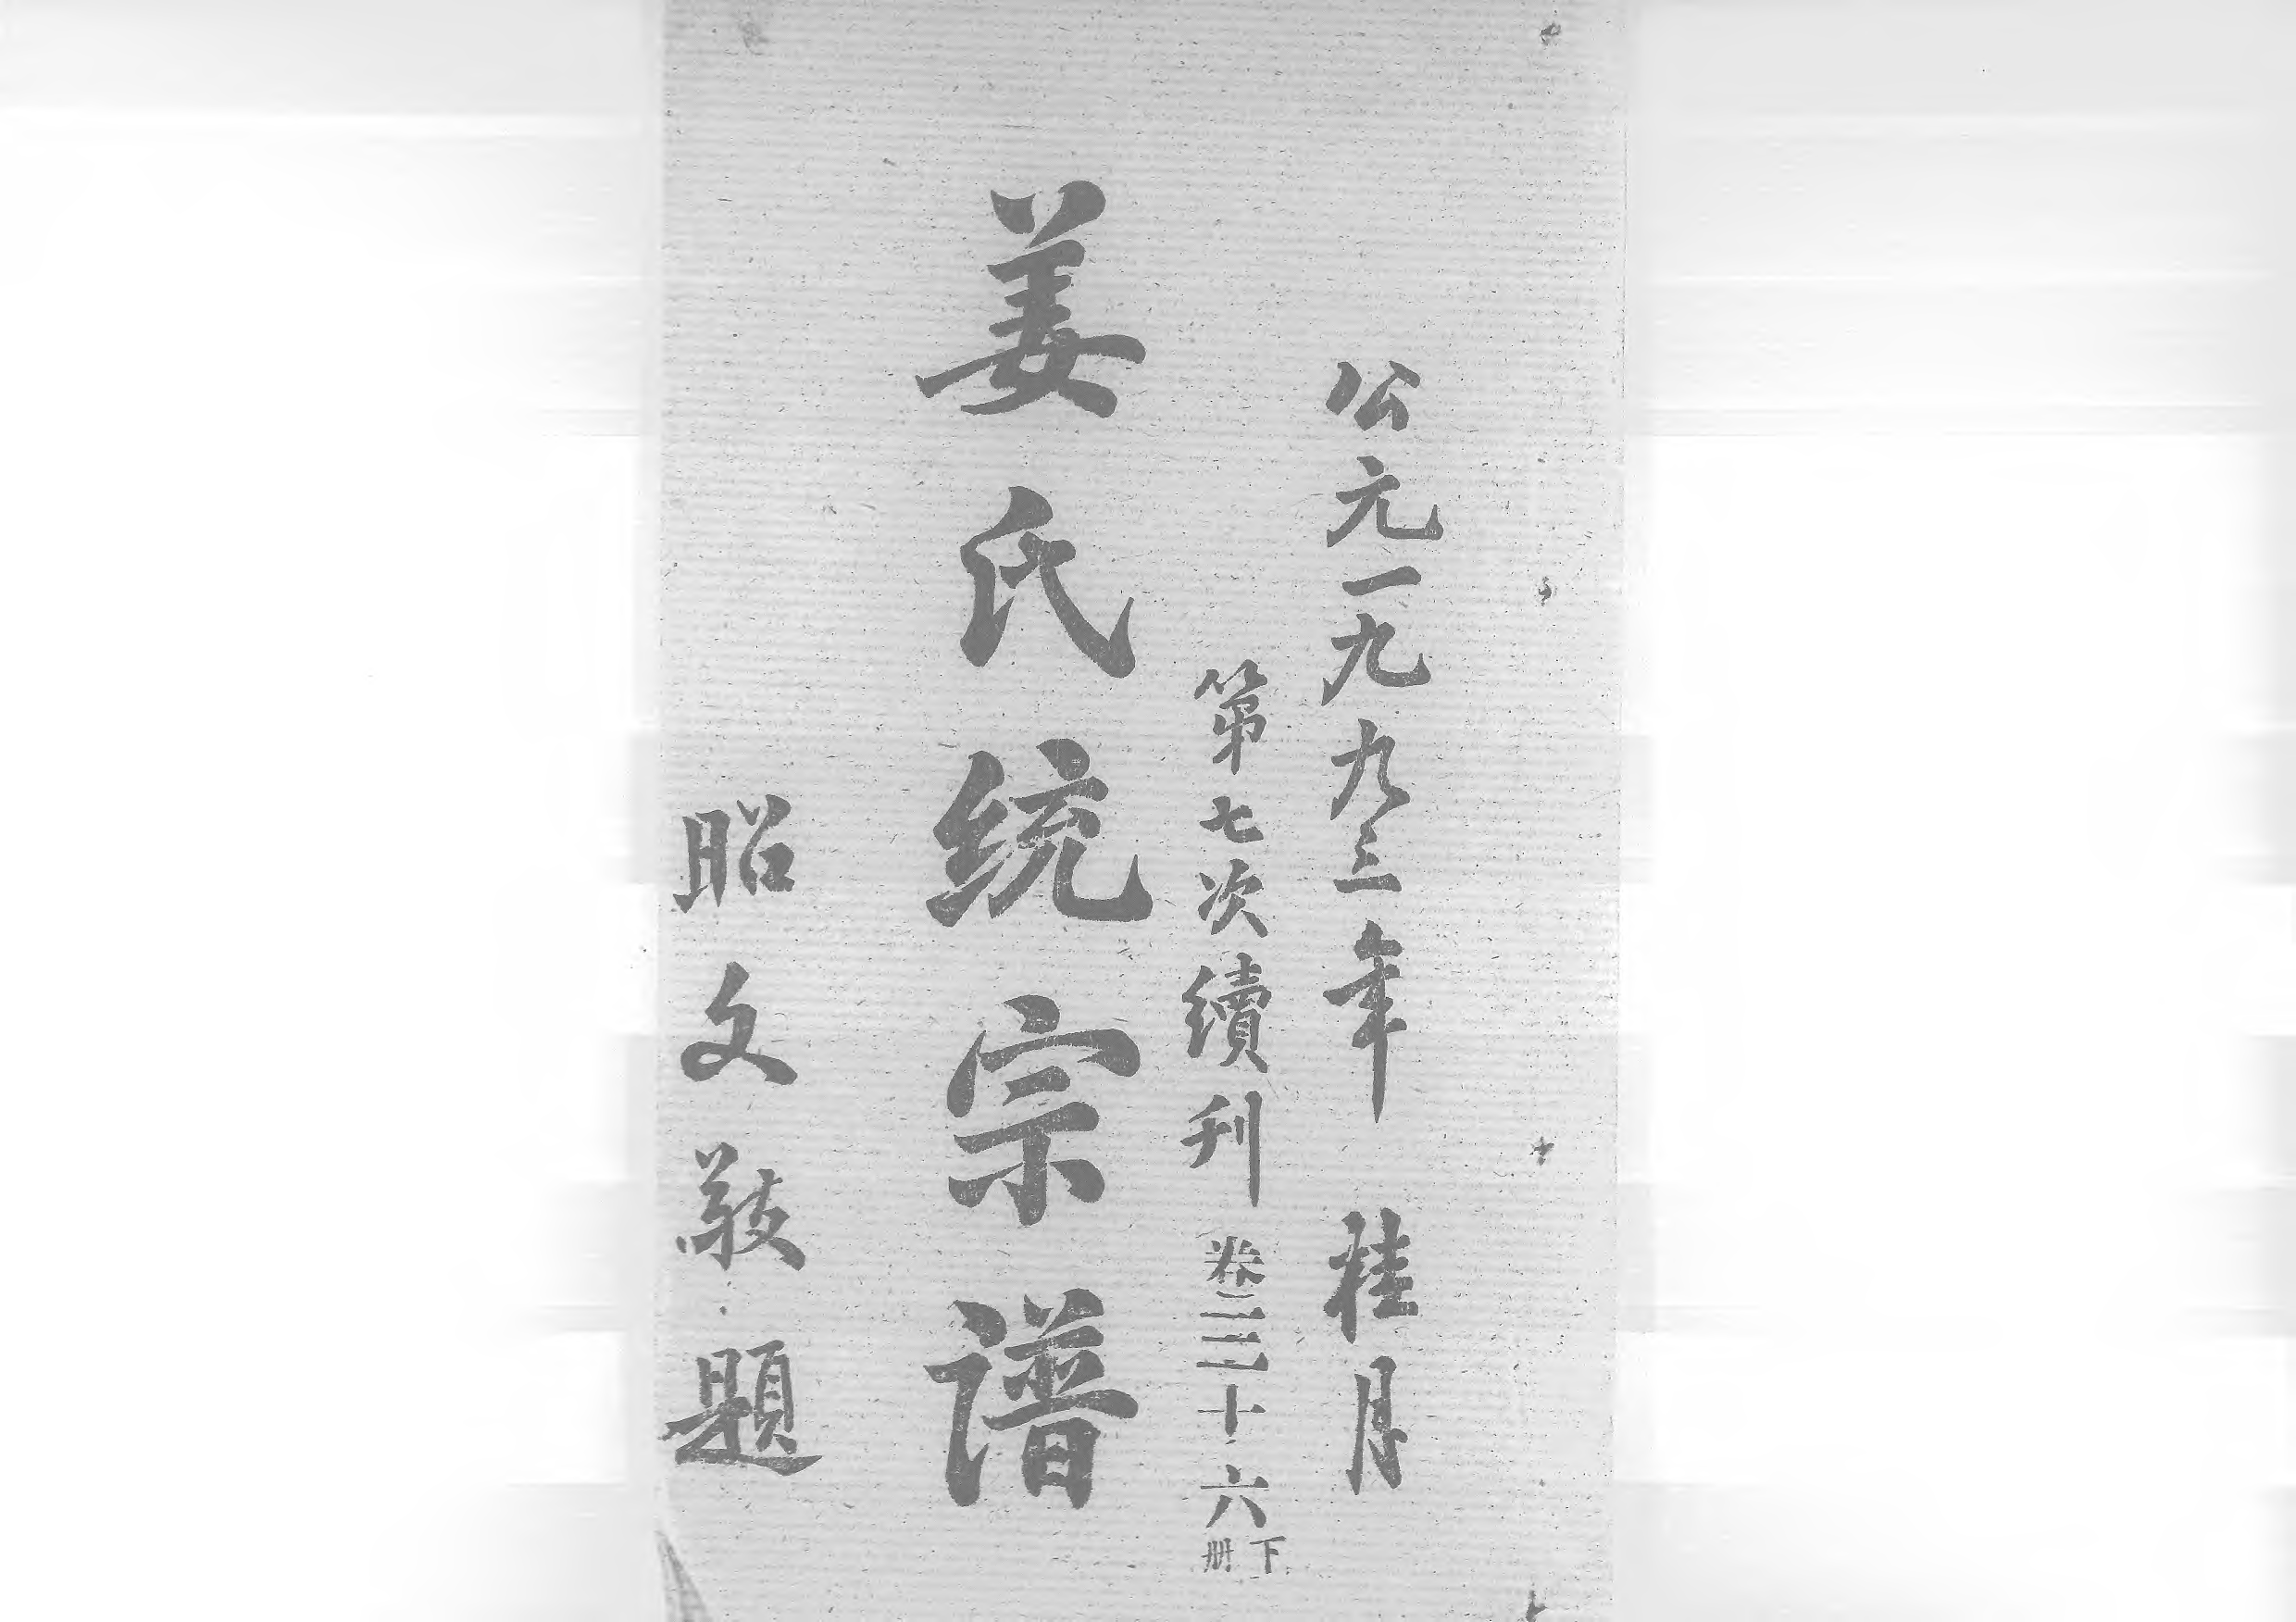 公元一九九三年 桂月
第七次續刊 卷二三十六 下册
姜氏统宗谱
昭文敬題